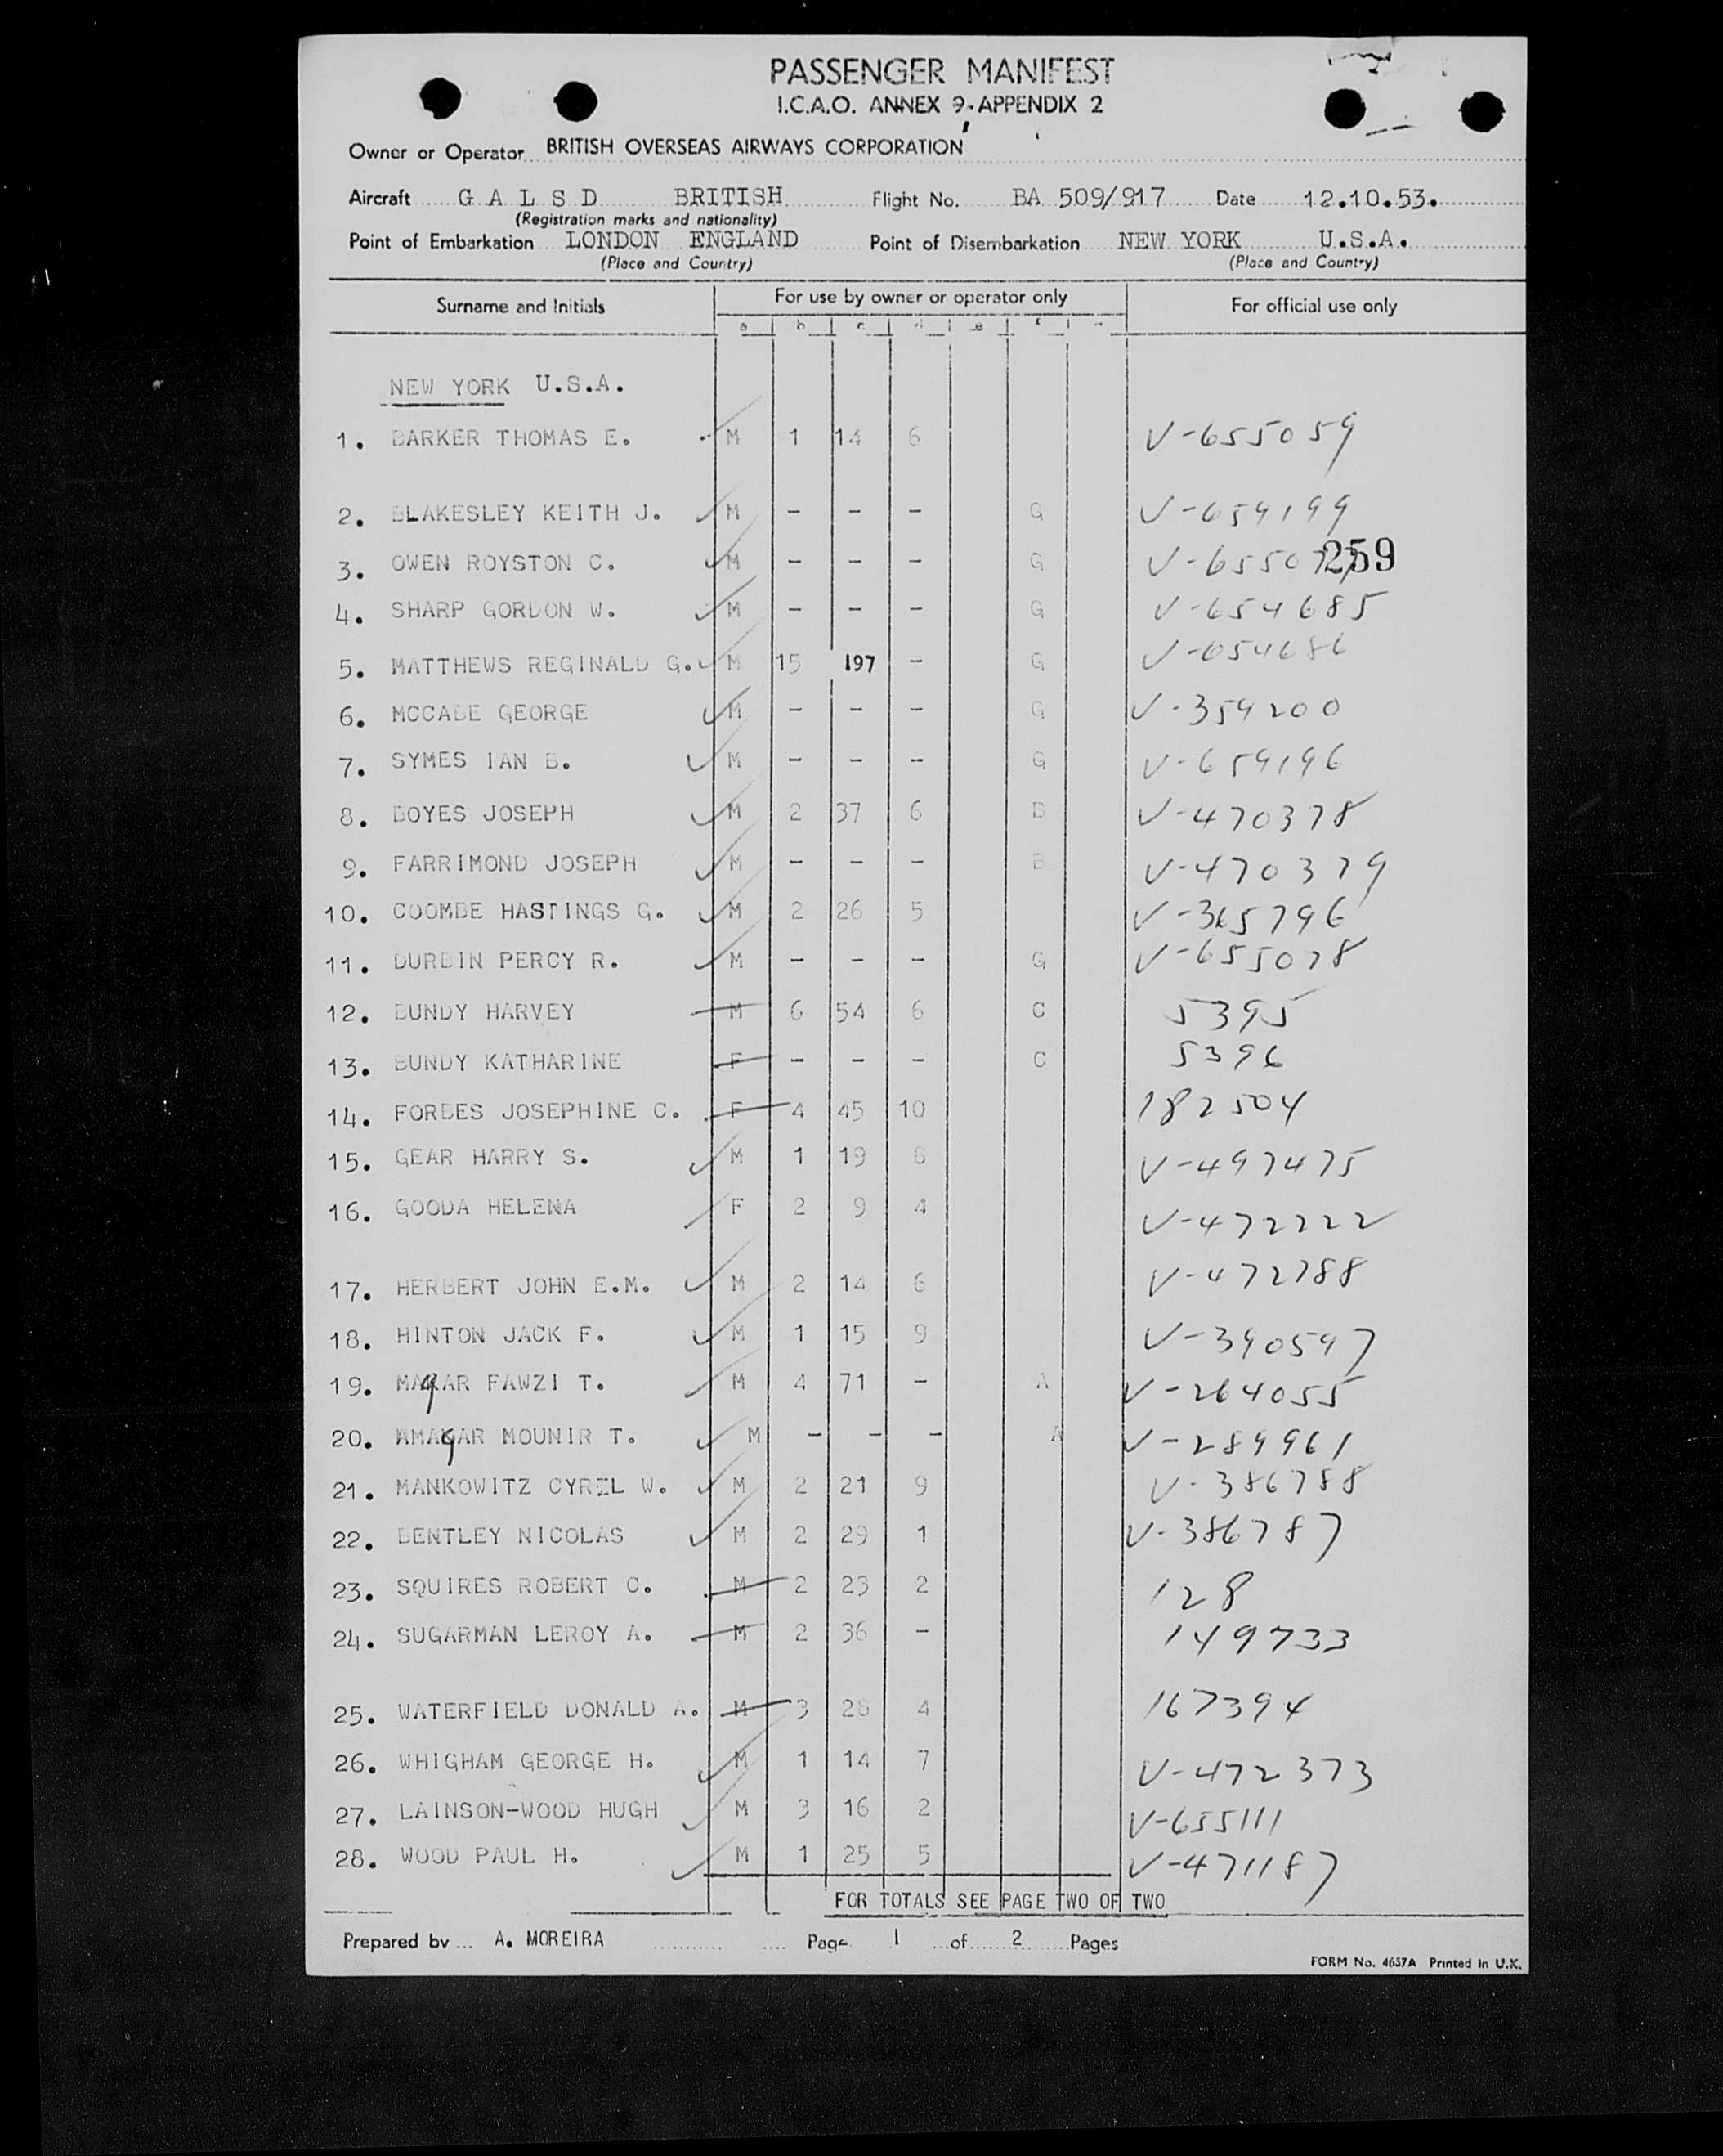 PASSENGER MANIFEST
I.C.A.O. ANNEX 9-APPENDIX 2
Owner or Operator BRITISH OVERSEAS AIRWAYS CORPORATION
Aircraft G A L S D BRITISH Flight No. BA 509/917 Date 12.10.53.
(Registration marks and nationality)
Point of Embarkation LONDON ENGLAND Point of Disembarkation NEW YORK U.S.A.
(Place and Country) (Place and Country)
Surname and Initials For use by owner or operator only For official use only
a b c d e f
NEW YORK U.S.A.
1. BARKER THOMAS E. M 1 14 6 V-655059
2. BLAKESLEY KEITH J. M - - - G V-659199
3. OWEN ROYSTON C. M - - - G 259
4. SHARP GORDON W. M - - - G V-654685
5. MATTHEWS REGINALD G. M 15 197 - G V-654686
6. MCCABE GEORGE M - - - G V-359200
7. SYMES IAN B. M - - - G V-659196
8. BOYES JOSEPH M 2 37 6 B V-470378
9. FARRIMOND JOSEPH M - - - B V-470379
10. COOMBE HASTINGS G. M 2 26 5 V-365796
11. DURBIN PERCY R. M - - - G V-655078
12. BUNDY HARVEY M 6 54 6 C 5395
13. BUNDY KATHARINE F - - - C 5396
14. FORBES JOSEPHINE C. F 4 45 10 182504
15. GEAR HARRY S. M 1 19 8 V-497475
16. GOODA HELENA F 2 9 4 V-472222
17. HERBERT JOHN E.M. M 2 14 6 V-472788
18. HINTON JACK F. M 1 15 9 V-390597
19. MAqAR FAWZI T. M 4 71 - A V-264055
20. MAqAR MOUNIR T. M - - - A V-289961
21. MANKOWITZ CYRIL W. M 2 21 9 V-386788
22. BENTLEY NICOLAS M 2 29 1 V-386787
23. SQUIRES ROBERT C. M 2 23 2 128
24. SUGARMAN LEROY A. M 2 36 - 149733
25. WATERFIELD DONALD A. M 3 28 4 167394
26. WHIGHAM GEORGE H. M 1 14 7 V-472373
27. LAINSON-WOOD HUGH M 3 16 2 V-655111
28. WOOD PAUL H. M 1 25 5 V-471187
FOR TOTALS SEE PAGE TWO OF TWO
Prepared by A. MOREIRA Page 1 of 2 Pages
FORM No. 4657A Printed in U.K.